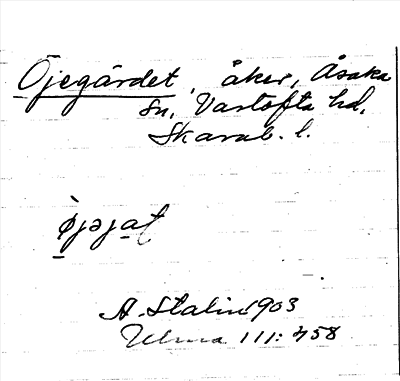 Öjegärdet, åker, Åsaka
sn, Vartofta hd,
Skarab. l.
A. Stalin 1903
Ulma 111: 458